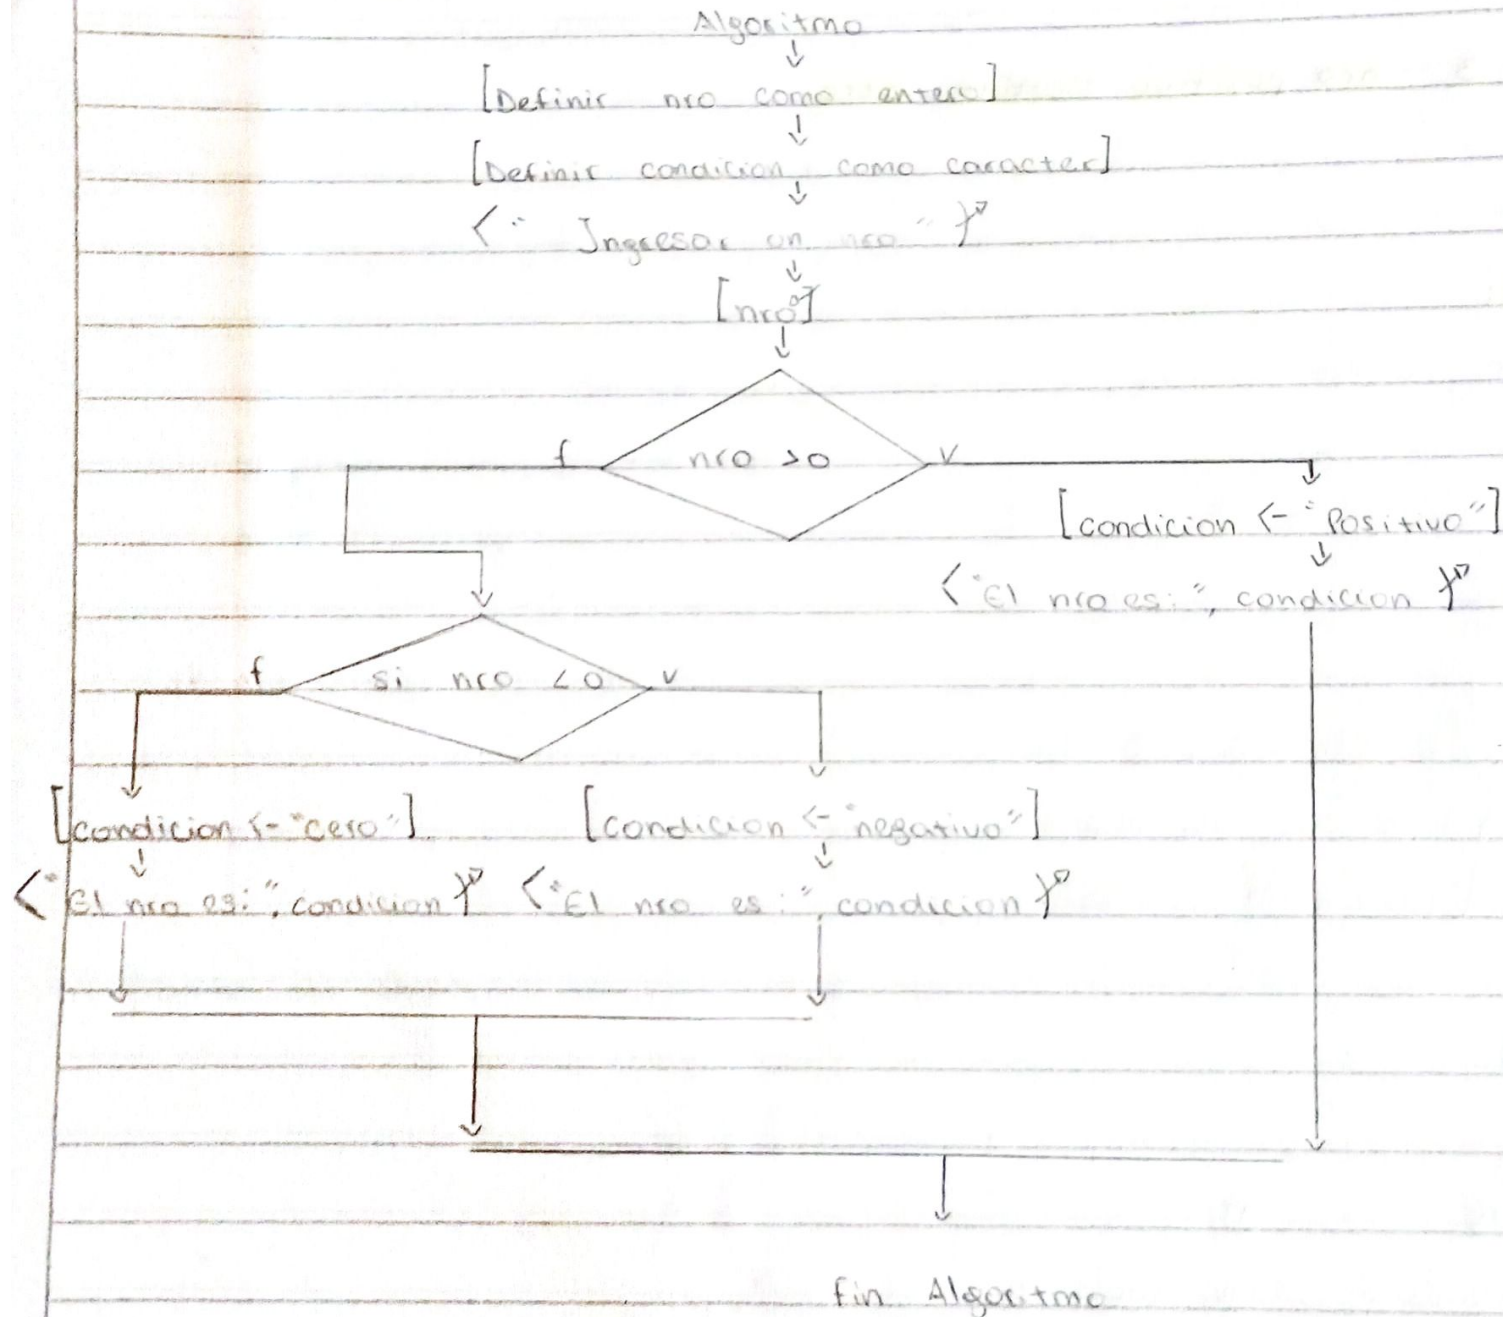 Algoritmo
[Definir nro como entero]
[Definir condicion como caracter]
<" Ingresar un nro "}
[nro]
f nro >0 v
[condicion <- "Positivo"]
<"El nro es:", condicion }
f si nro <0 v
[condicion <- "cero"] [condicion <- "negativo"]
<"El nro es:", condicion} <"El nro es:" condicion}
fin Algoritmo